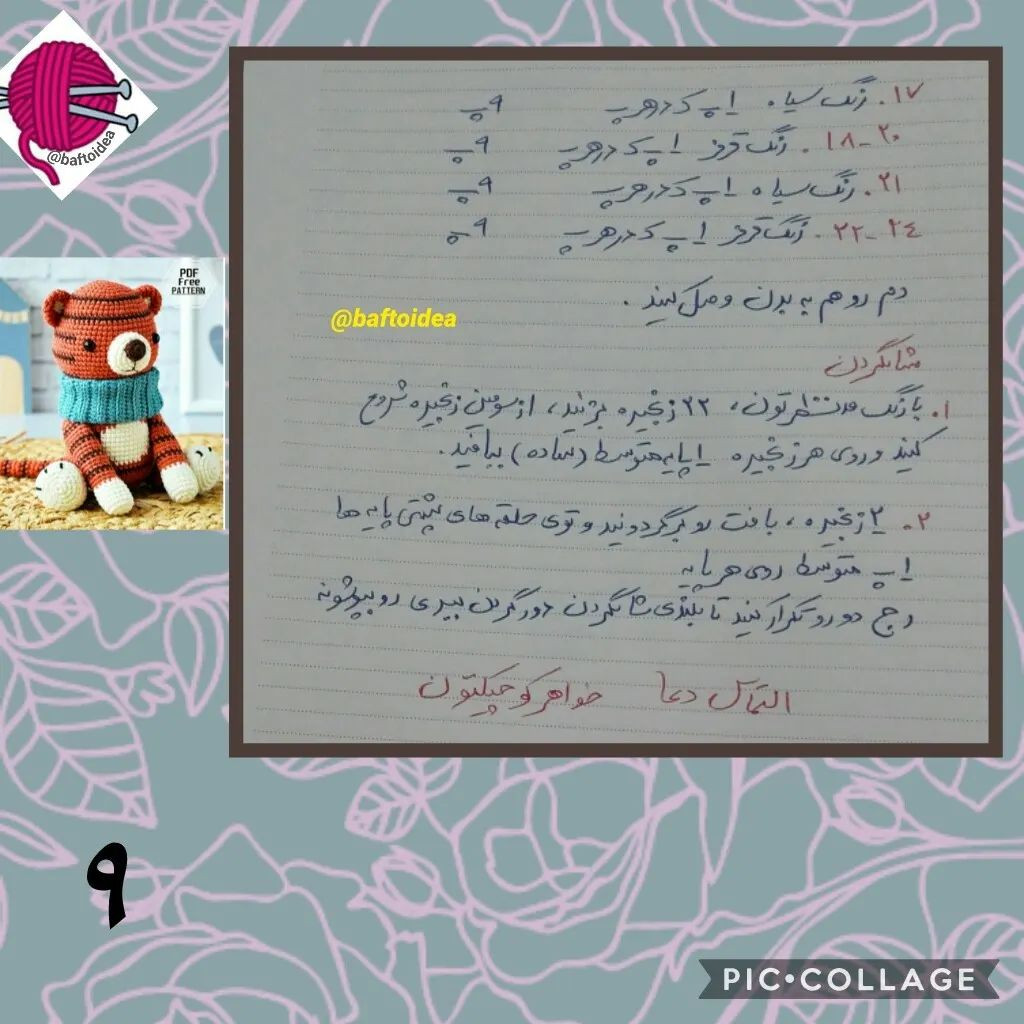 @baftoidea
۱۷. رنگ سیاه ۱پ ک در هر پ ۹پ
۱۸-۲۰. رنگ قرمز ۱پ ک در هر پ ۹پ
۲۱. رنگ سیاه ۱پ ک در هر پ ۹پ
۲۲-۲٤. رنگ قرمز ۱پ ک در هر پ ۹پ
دم رو هم به بدن وصل کنید.
@baftoidea
شالگردن
۱. با رنگ مدنظرتون، ۲۲ زنجیره بزنید، از سومین زنجیره شروع
کنید و روی هر زنجیره ۱ پایه متوسط (ساده) ببافید.
۲. ۲ زنجیره، بافت رو برگردونید و توی حلقه های پشتی پایه ها
۱پ متوسط روی هر پایه
رج دو رو تکرار کنید تا بلندی شالگردن دور گردن ببری رو بپوشونه
التماس دعا خواهر کوچیکتون
PDF
Free
PATTERN
۹
PIC•COLLAGE